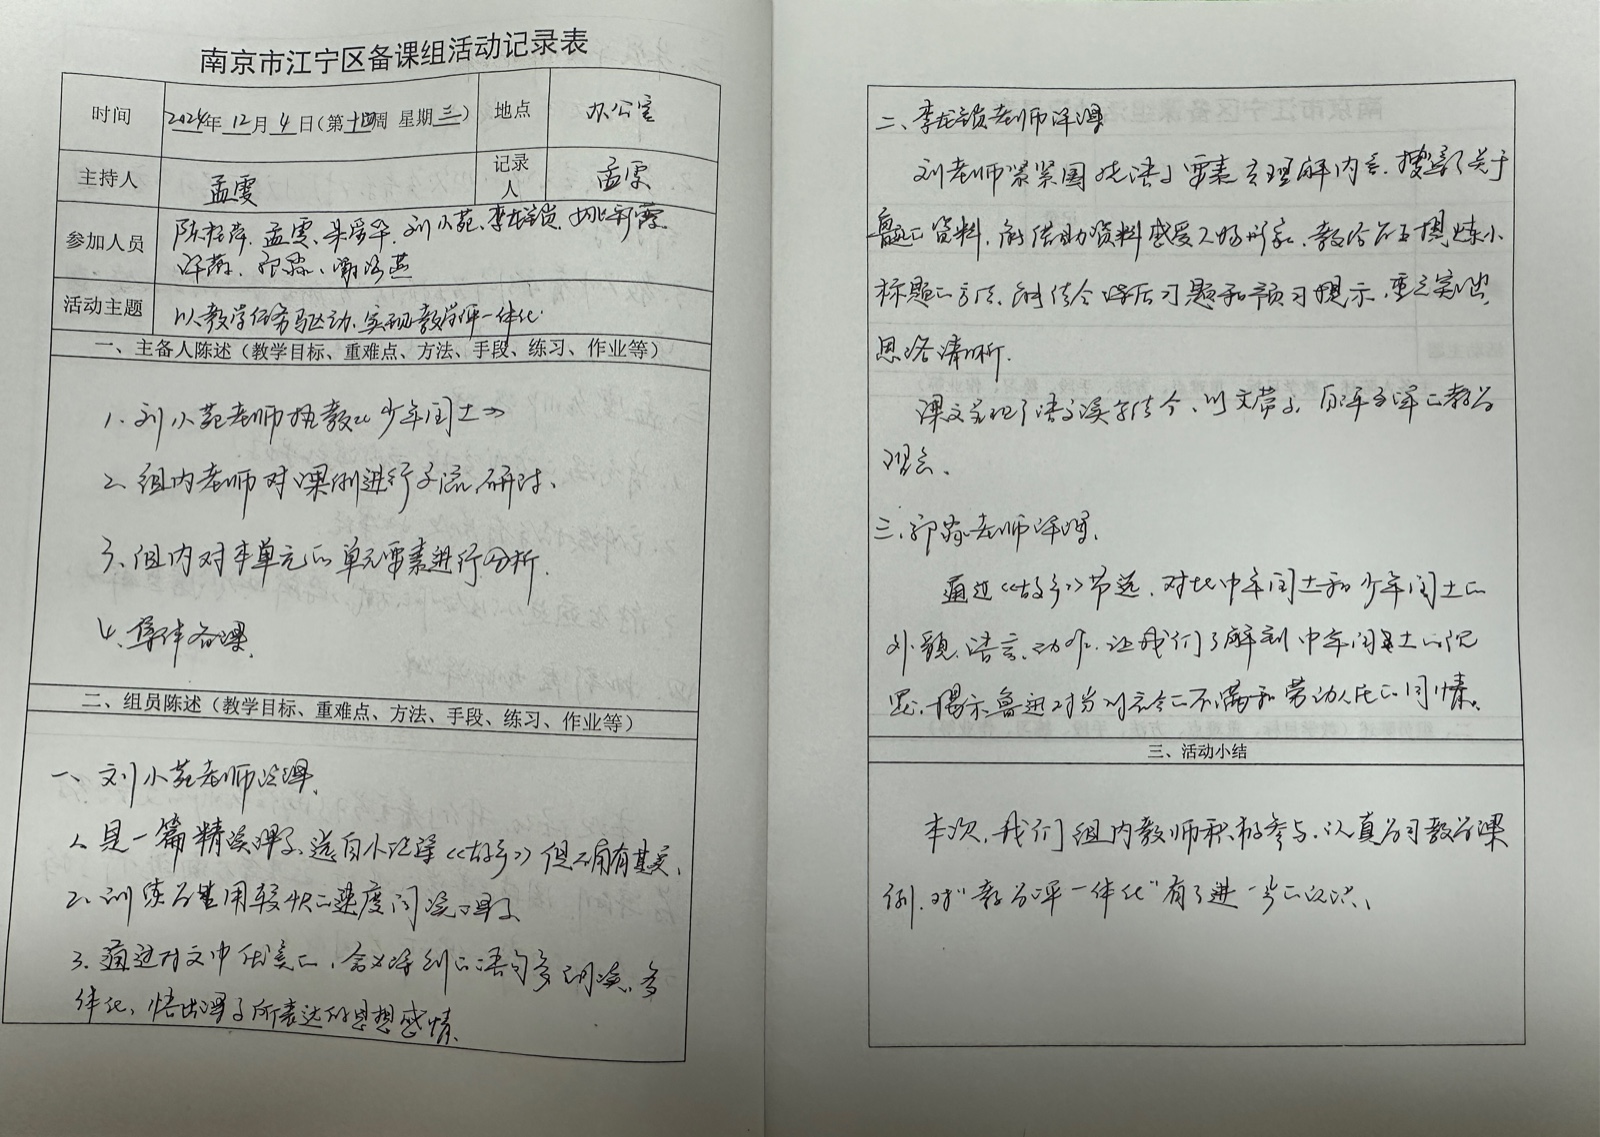 南京市江宁区备课组活动记录表
时间 2024年12月4日(第十四周 星期三) 地点 办公室
主持人 孟雯 记录人 孟雯
参加人员 孟雯、刘小苑、李龙锁、
活动主题 以教学任务驱动,实现教学评一体化
一、主备人陈述(教学目标、重难点、方法、手段、练习、作业等)
1. 刘小苑老师执教《少年闰土》
2、组内老师对课例进行交流、研讨、
3、组内对本单元的单元要素进行分析.
4、集体备课.
二、组员陈述(教学目标、重难点、方法、手段、练习、作业等)
一、刘小苑老师说课.
1、是一篇精读课文、选自小说《故乡》但
2、训练学生用较快的速度阅读课文
3、通过对文中优美的、含义深刻的语句多朗读、多
体化、悟出课文所表达的思想感情.
二、李龙锁老师评课
刘老师紧紧围绕语文要素去理解内容,搜集了关于
鲁迅的资料,能借助资料感受人物形象、教给学生提炼小
标题的方法,能结合课后习题和预习提示,重点突出,
思路清晰.
课文呈现了语文读写结合、以文带文、的教学
理念、
三、老师评课.
通过《故乡》节选,对比中年闰土和少年闰土的
外貌、语言、动作、让我们了解到中年闰土的
揭示鲁迅对当时社会的不满和劳动人民的同情。
三、活动小结
本次,我们组内教师积极参与、认真学习教学课
例,对“教学评一体化”有了进一步的认识、